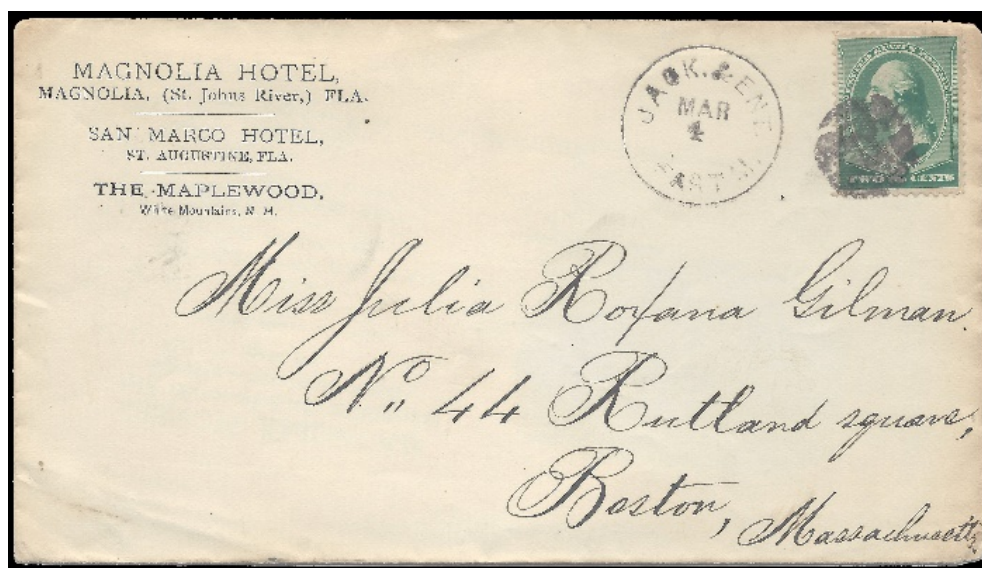 MAGNOLIA HOTEL,
MAGNOLIA, (St. Johns River,) FLA.
SAN MARCO HOTEL,
ST. AUGUSTINE, FLA.
THE MAPLEWOOD.
White Mountains, N. H.
JACK. & ENT
MAR
4
EAST M.
TWO CENTS
Miss Julia Roxana Gilman.
No. 44 Rutland square,
Boston,
Massachusetts